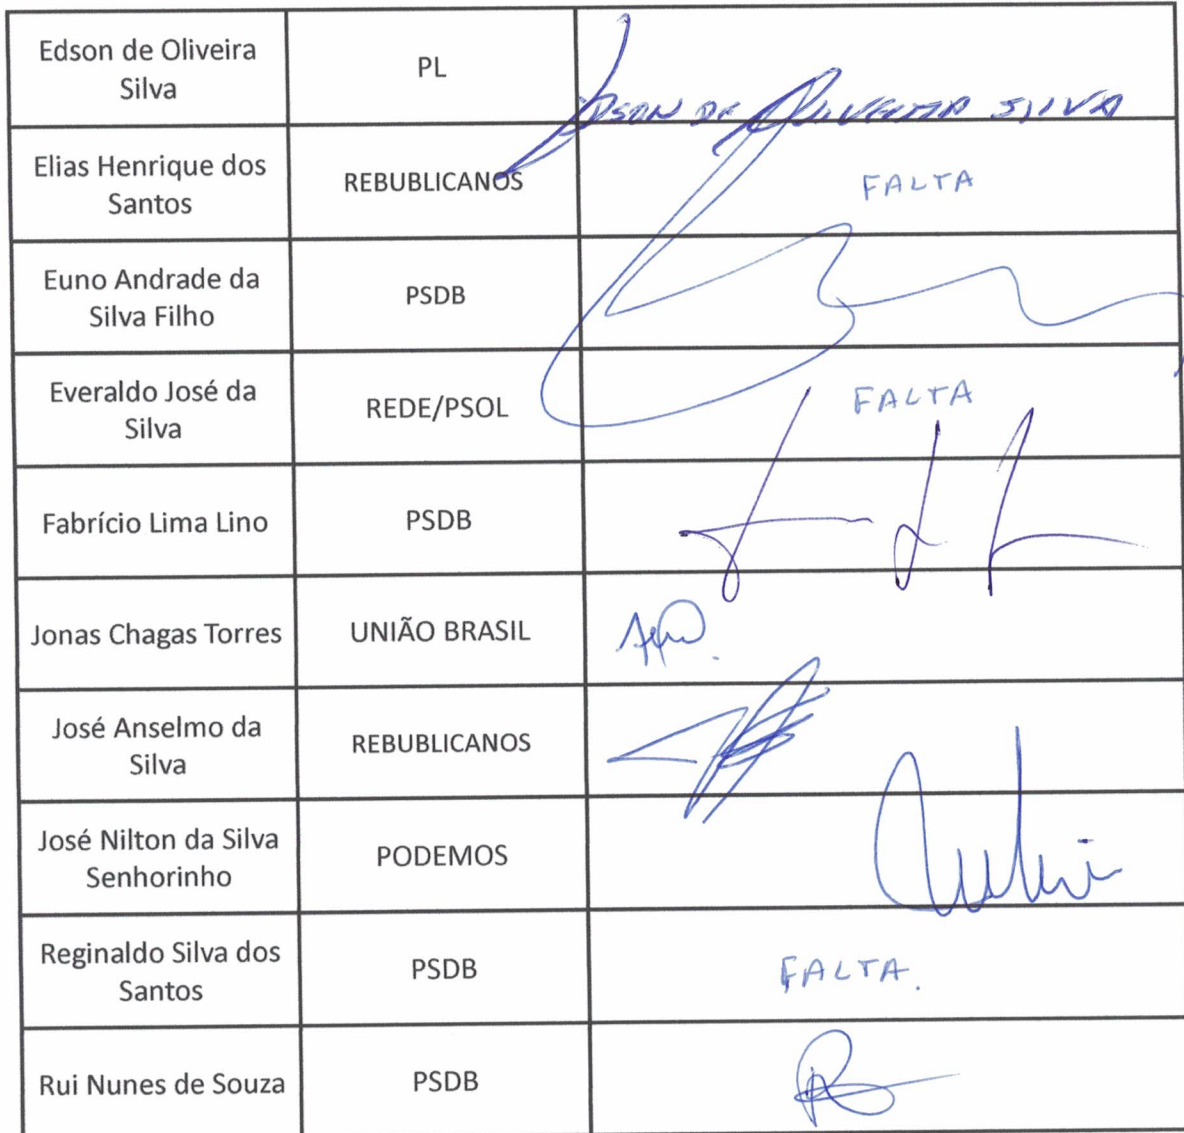 Edson de Oliveira
Silva
PL
EDSON DE OLIVEIRA SILVA
Elias Henrique dos
Santos
REBUBLICANOS
FALTA
Euno Andrade da
Silva Filho
PSDB
Everaldo José da
Silva
REDE/PSOL
FALTA
Fabrício Lima Lino
PSDB
Jonas Chagas Torres
UNIÃO BRASIL
José Anselmo da
Silva
REBUBLICANOS
José Nilton da Silva
Senhorinho
PODEMOS
Reginaldo Silva dos
Santos
PSDB
FALTA.
Rui Nunes de Souza
PSDB